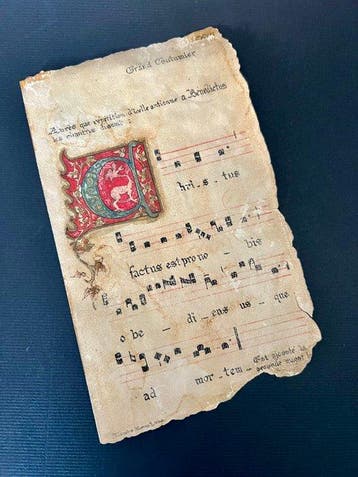 Grand Coutumier
Après que répétition d'icelle antienne a Benedictus
les chantres disent :
Chri - s - tus
factus est pro no - bis
o be - di - ens us - que
ad mor - tem -
Est ajouté la
seconde nuit